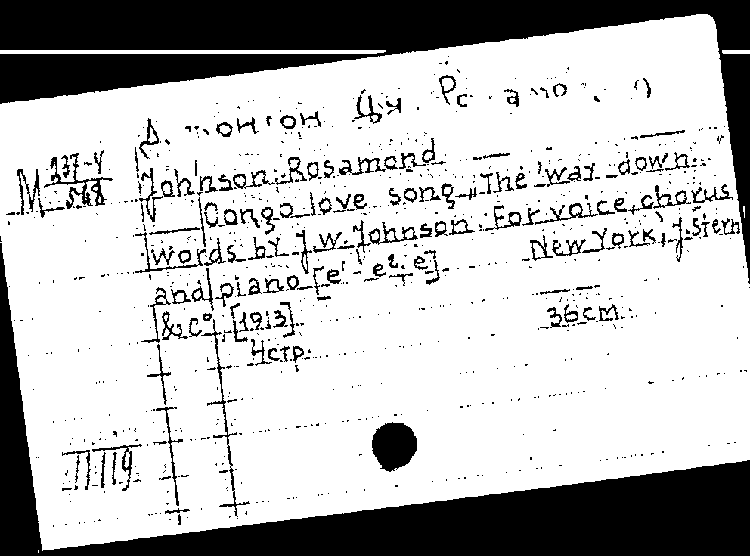 М 237-4/568
Johnson, Rosamond
Congo love song „The way down.."
words by J.W. Johnson. For voice, chorus
and piano [e¹ - e²; e].
New York, J. Stern
& C° [1913].
4 стр.
36 cm.
11119